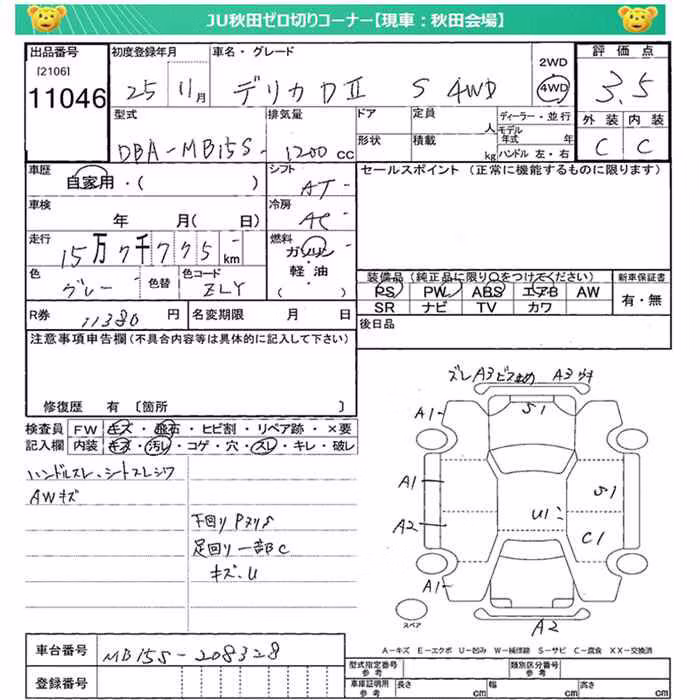 JU秋田ゼロ切りコーナー【現車：秋田会場】
出品番号 初度登録年月 車名・グレード 2WD 評価点
[2106] 11046 25 11月 デリカDⅡ S 4WD 4WD 3.5
型式 排気量 ドア 定員 人 ディーラー・並行 外装 内装
DBA-MB15S- 1200cc 形状 積載 kg モデル年式 年 ハンドル 左・右 C C
車歴 自家用・( ) シフト AT- セールスポイント (正常に機能するものに限ります)
車検 年 月( 日) 冷房 AC-
走行 15万7千775-km 燃料 ガソリン 軽油・( )
色 グレー 色替 色コード ZLY
装備品(純正品に限り○をつけてください) 新車保証書
PS PW ABS エアB AW 有・無
SR ナビ TV カワ
R券 11380円 名変期限 月 日 後日品
注意事項申告欄(不具合内容等は具体的に記入して下さい)
修復歴 有 [箇所 ]
検査員 FW キズ・飛石・ヒビ割・リペア跡・×要
記入欄 内装 キズ・汚レ・コゲ・穴・スレ・キレ・破レ
ハンドルスレ、シートスレシワ
AWキズ
下回りPヌリS
足回り一部C
キズ、U
ズレ A3 ビス止め A3ワキ
A1 S1
A1 S1
U1
A2 C1
A1
スペア A2
A-キズ E-エクボ U-凹み W-補修跡 S-サビ C-腐食 XX-交換済
車台番号 MB15S-208328
登録番号
型式指定番号 参考 類別区分番号 参考
車庫証明用 参考 長さ cm 幅 cm 高さ cm